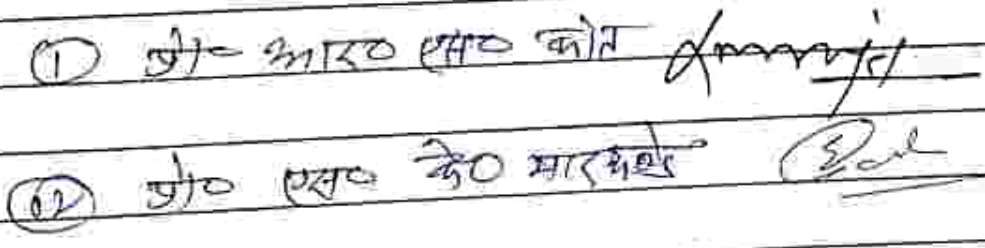 ① प्रो० आर० एस० कोल
०२ प्रो० एस० के० भारकण्डे